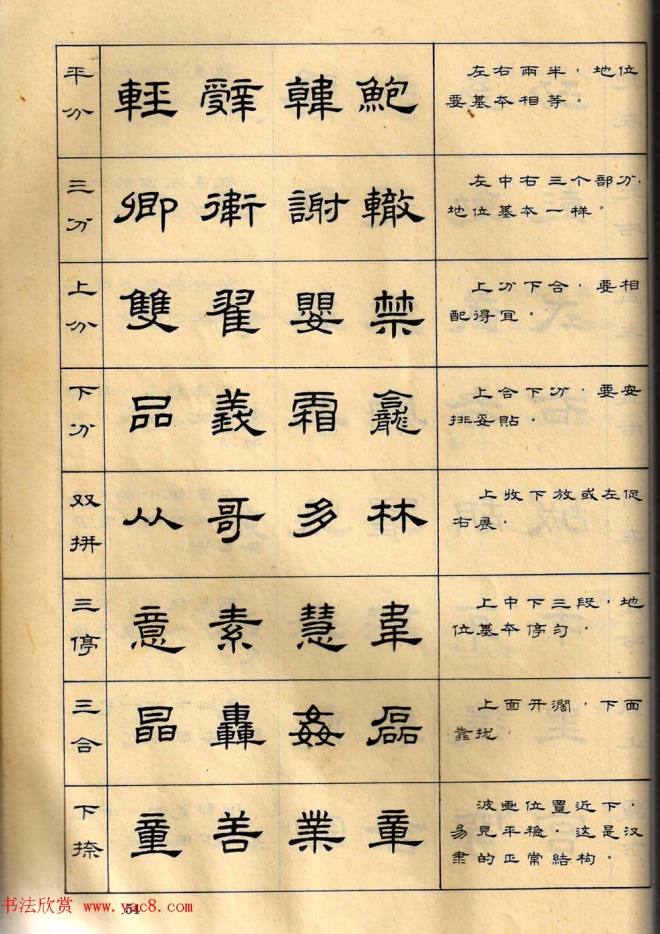 平分
辭 韓 鮑
左右兩半，地位
要基本相等。
三分
卿 衛 謝 轍
左中右三个部分，
地位基本一样。
上分
雙 翟 嬰 禁
上分下合，要相
配得宜。
下分
品 義 霜 龕
上合下分，要安
排妥貼。
双拼
从 哥 多 林
上收下放或左促
右展。
三停
意 素 慧 韋
上中下三段，地
位基本停匀。
三合
晶 轟 姦 磊
上面开濶，下面
靠拢。
下捺
童 善 業 章
波画位置近下，
易見平穏。这是汉
隶的正常結构。
54
书法欣赏 www.yac8.com